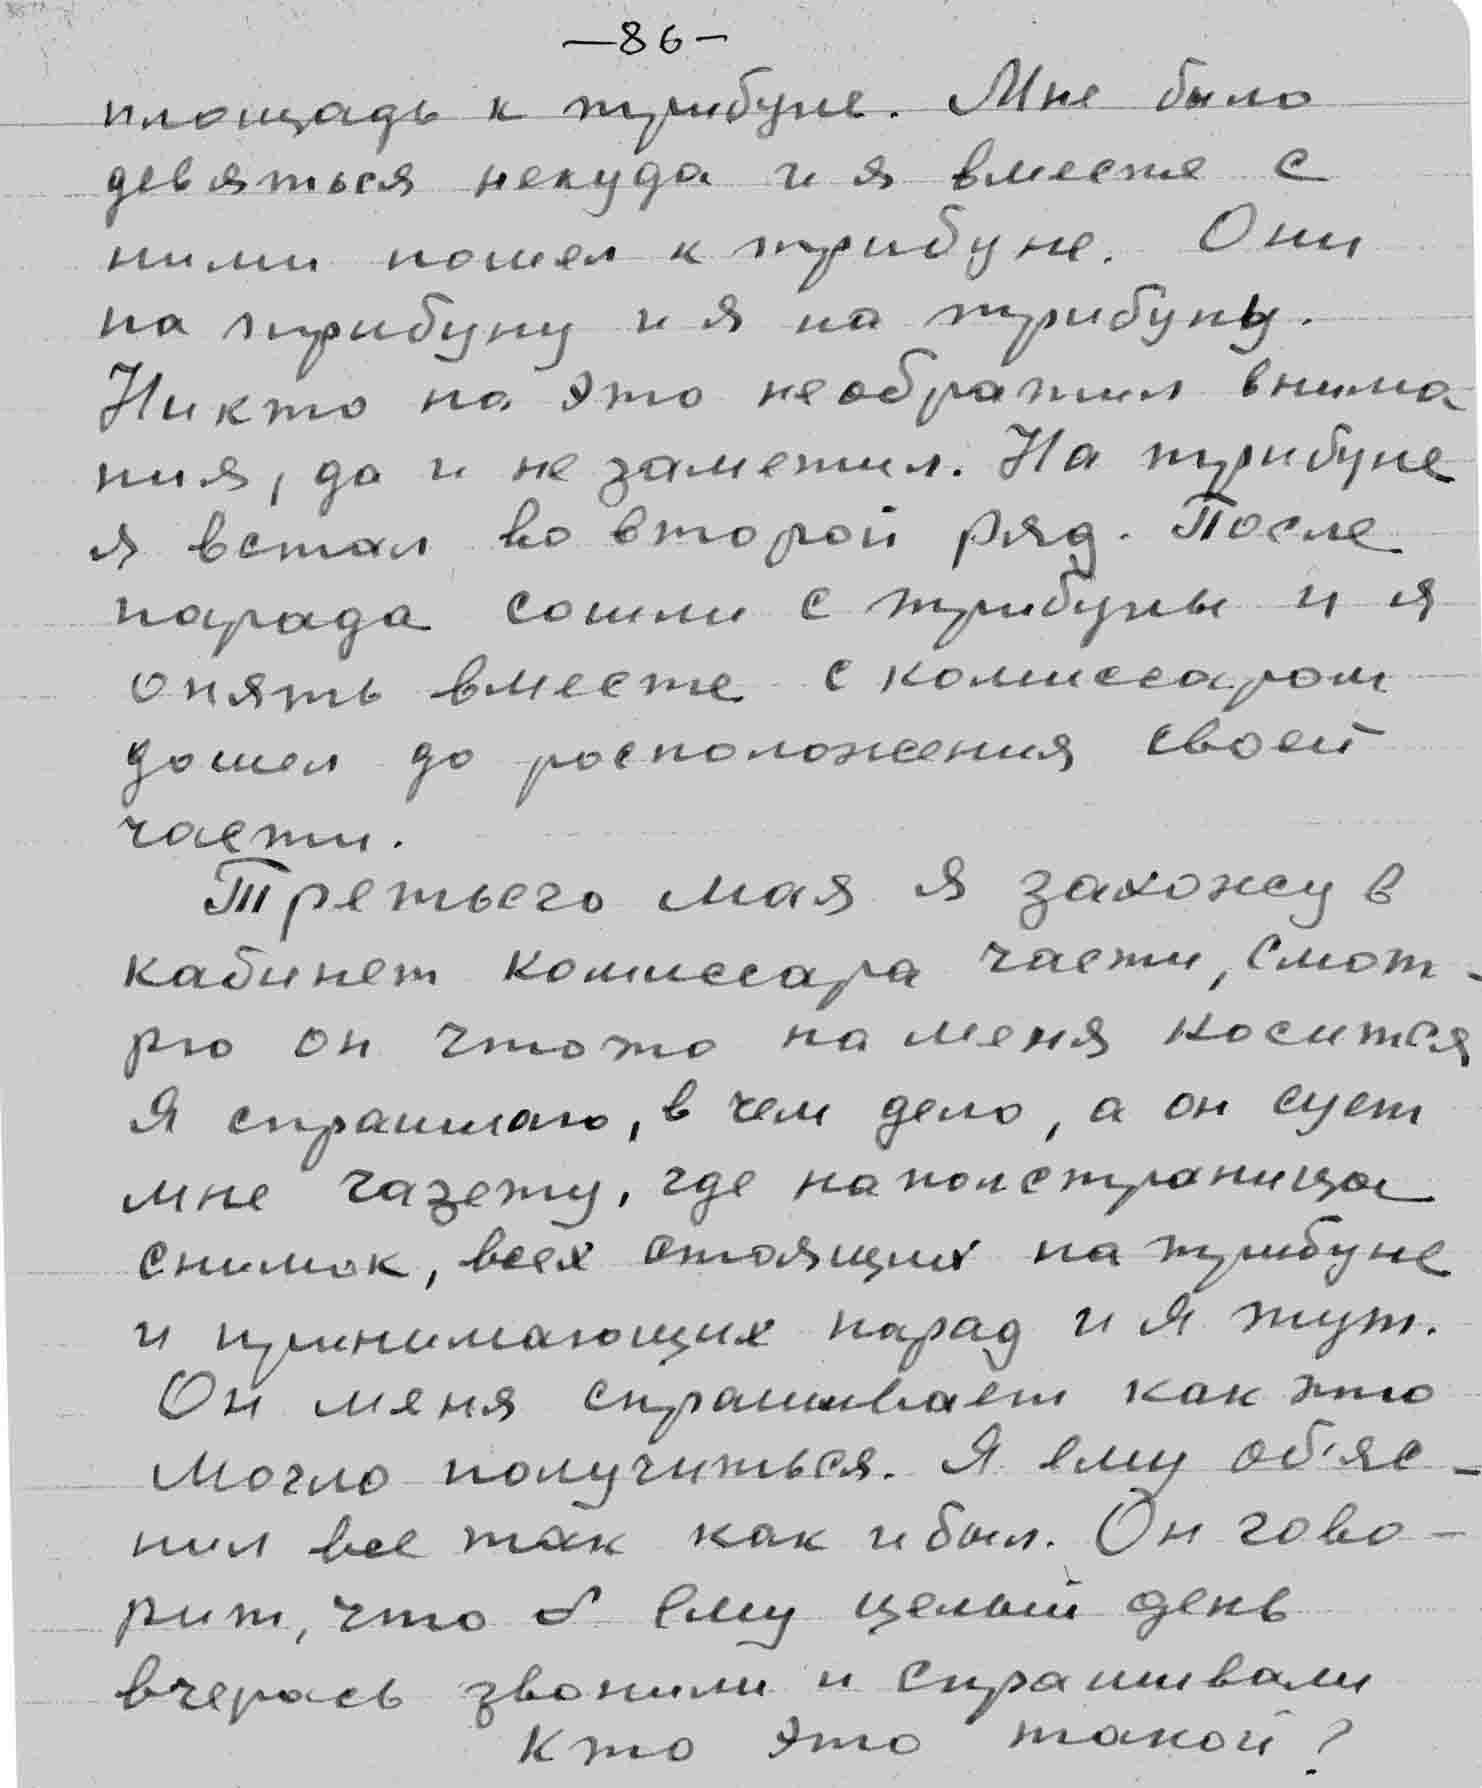 —86—
площадь к трибуне. Мне было
девяться некуда и я вместе с
ними пошел к трибуне. Они
на трибуну и я на трибуну.
Никто на это необратил внима-
ния, да и не заметил. На трибуне
я встал во второй ряд. После
парада сошли с трибуны и я
опять вместе с комиссаром
дошел до росположения своей
части.
Третьего мая я захожу в
кабинет комиссара части, смот-
рю он чтото на меня косится
Я спрашиаю, в чем дело, а он сует
мне газету, где на полстраницы
снимок, всех стоящих на трибуне
и принимающих парад и я тут.
Он меня спрашивает как это
могло получиться. Я ему об'яс-
нил все так как и был. Он гово-
рит, что б ему целый день
вчерась звонили и спрашивали
Кто это такой?